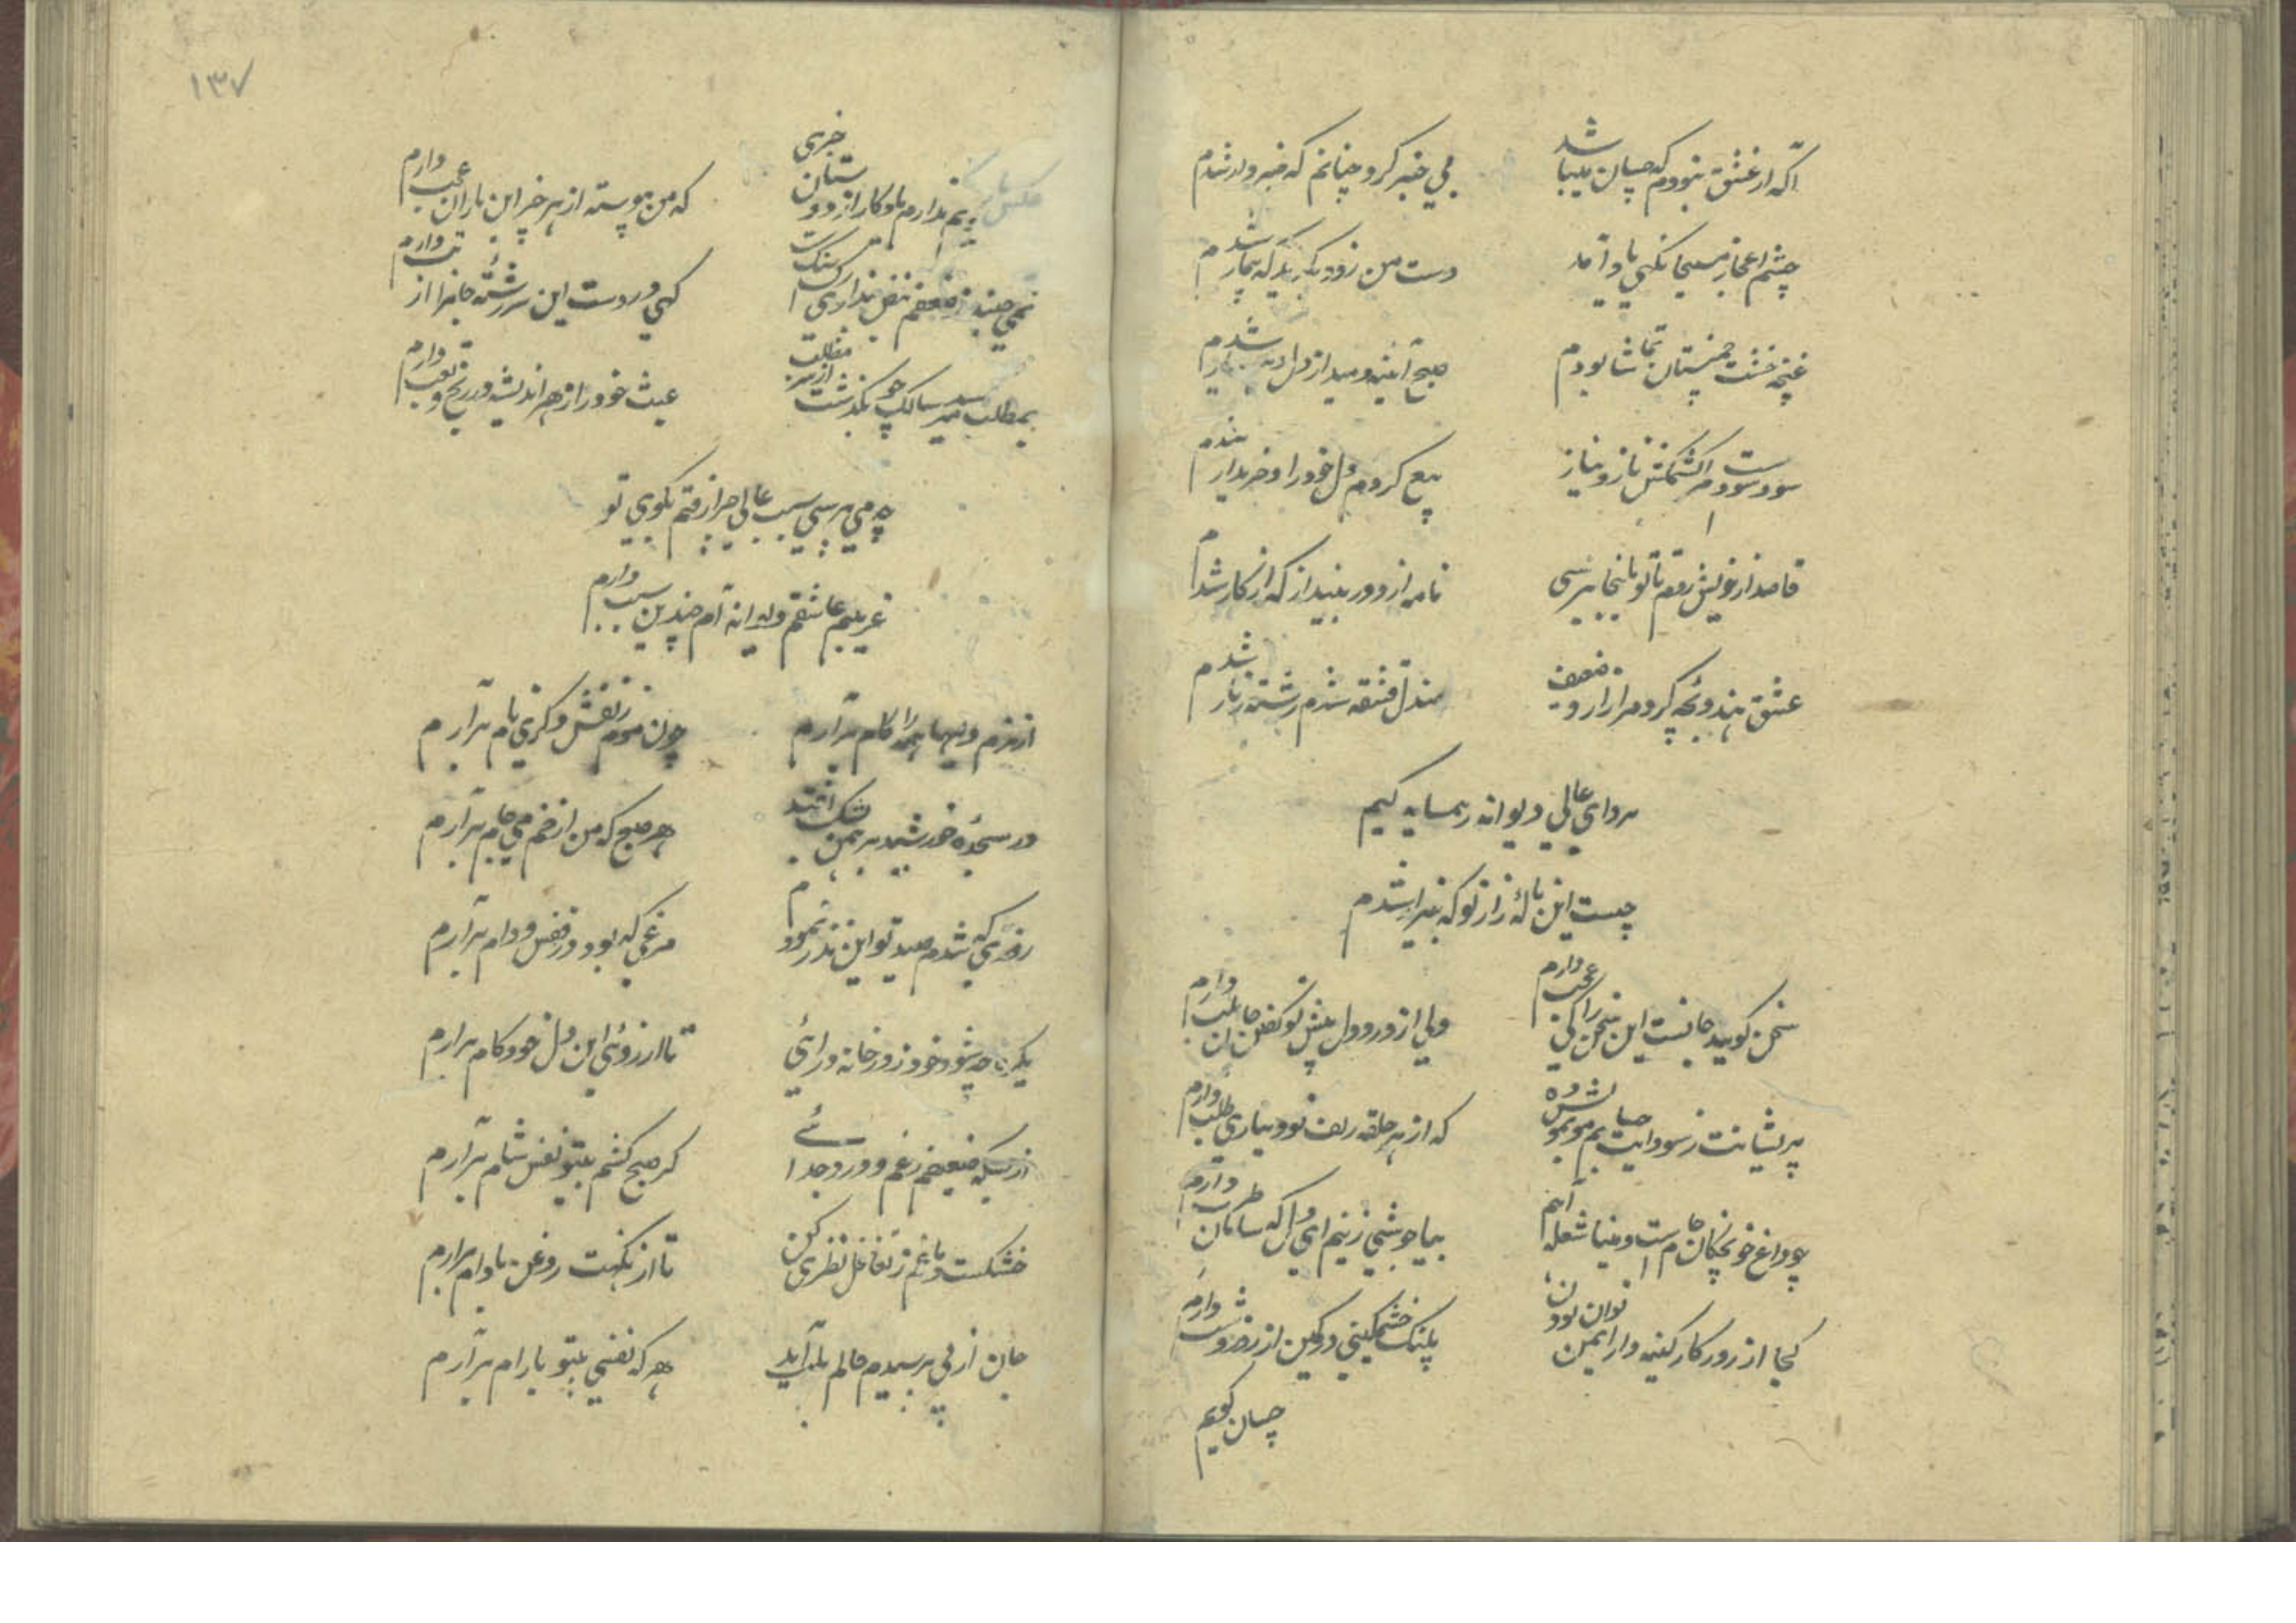 آگه از عشق نبودم که چسان میباشد
بی خبر کرد چنانم که خبردار شدم
چشم اعجاز مسیحا نگهی یاد آمد
دست من زود بگیرید که بیمار شدم
غنچه خشت چمنستان تماشا بودم
صبح آئینه دمید از دل
شدم
سود سوداست مرا کشمکش ناز و نیاز
بیع کردم دل خود را و خریدار شدم
قاصد از خویش روم تا تو بانجا برسی
نامه از دور بینداز که از کار شدم
عشق هندو بچه کرد مرا زار و ضعیف
صندل قشقه شدم رشته زنار شدم
سردای عالی دیوانه همسایه کیم
چیست این نالهٔ زار تو که بیزار شدم
سخن کوید جانست این سخن را کی عجب دارم
ولی از درد دل پیش تو کفتن جان بلب دارم
پریشانت ز سودایت جسم مو بمو شده
که از هر حلقه زلف تو دیداری طلب دارم
چو داغ خونچکان جامست و مینا شعله آهم
بیا جوشی زنیم ای دل که سامان طرب دارم
کجا از روزکار کینه دار ایمن توان بودن
پلنک خشمکینی در کمین از روز و شب دارم
چسان کویم
۱۳۷
غم ندارم با و کار از دوستان خبری
که من پیوسته از هر خبر این یاران عجب دارم
نمی جنبد ز ضعفم نبض نداری
کی در دست این سررشته جانرا از تب دارم
بمطلب میرسد سالک چو بگذشت از سر مطلب
عبث خود را ز هر اندیشه در رنج و تعب دارم
چه می پرسی سبب عالی چرا رفتم بکوی تو
غریبم عاشقم دیوانه ام چندین سبب دارم
از نرم دلیها همه را کام برآرم
چون موم ز نقش دکری نام برآرم
در سجدهٔ خورشید برهمن بشک افتد
هر صبح که من از خم می جام برآرم
روزی که شدم صید تو این نذر نمودم
مرغی که بود در قفس و دام برآرم
چه شود خود ز در خانه درائی
تا آرزوی این دل خودکام برارم
از بسکه ضعیفم ز غم و درد جدائی
کر صبح کشم بیتو نفس شام برآرم
خشکست دماغم ز تغافل نظری کن
تا از نکهت روغن بادام برارم
جان از پی پرسیدم حالم بلب آید
هر که نفسی بیتو بآرام برآرم